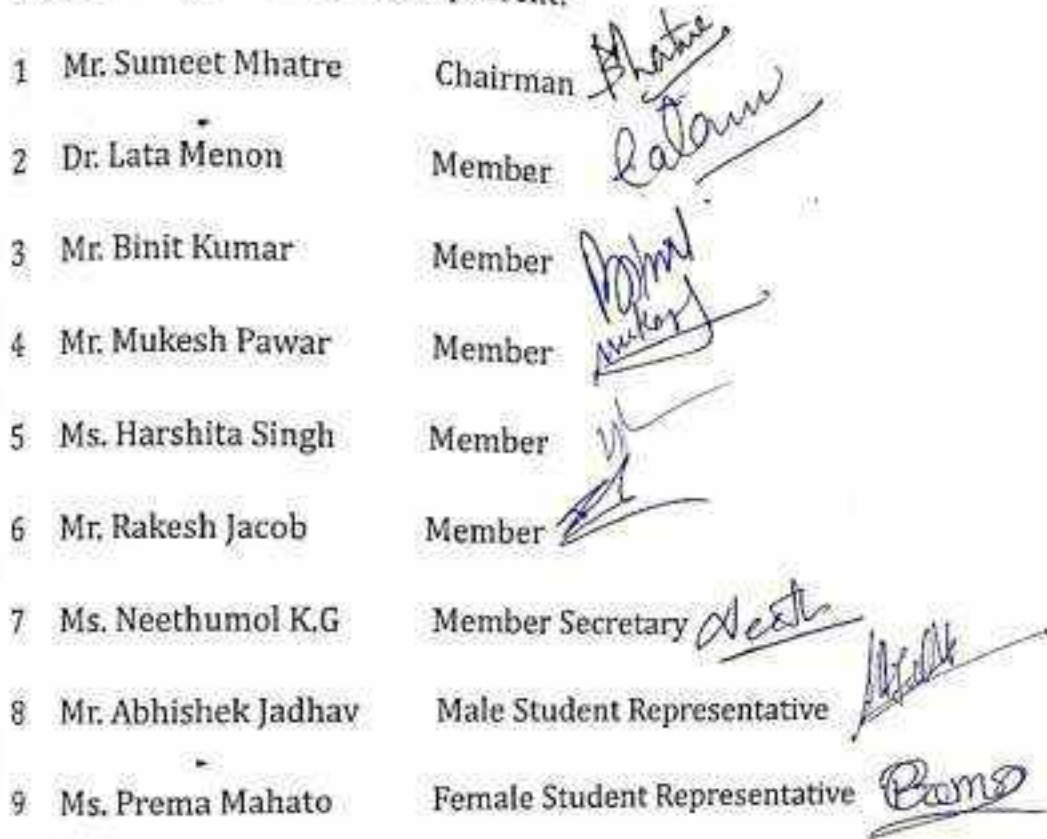 1 Mr. Sumeet Mhatre Chairman Mhatre
2 Dr. Lata Menon Member
3 Mr. Binit Kumar Member
4 Mr. Mukesh Pawar Member
5 Ms. Harshita Singh Member
6 Mr. Rakesh Jacob Member
7 Ms. Neethumol K.G Member Secretary
8 Mr. Abhishek Jadhav Male Student Representative
9 Ms. Prema Mahato Female Student Representative